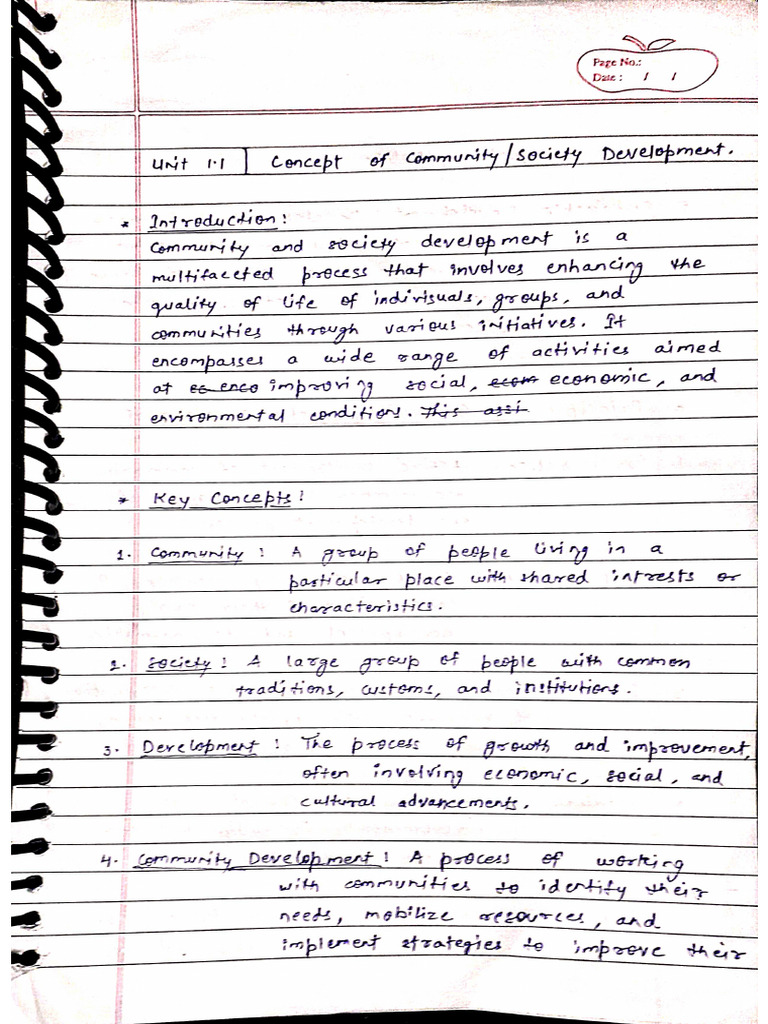 Page No.:
Date : / /
Unit 1.1 Concept of Community/Society Development.
* Introduction:
Community and society development is a
multifaceted process that involves enhancing the
quality of life of indivisuals, groups, and
communities through various initiatives. It
encompasses a wide range of activities aimed
at ec enco improving social, ecom economic, and
environmental conditions. This assi
* Key Concepts:
1. Community : A group of people living in a
particular place with shared intrests or
characteristics.
2. Society : A large group of people with common
traditions, customs, and institutions.
3. Development : The process of growth and improvement,
often involving economic, social, and
cultural advancements.
4. Community Development : A process of working
with communities to identify their
needs, mobilize resources, and
implement strategies to improve their